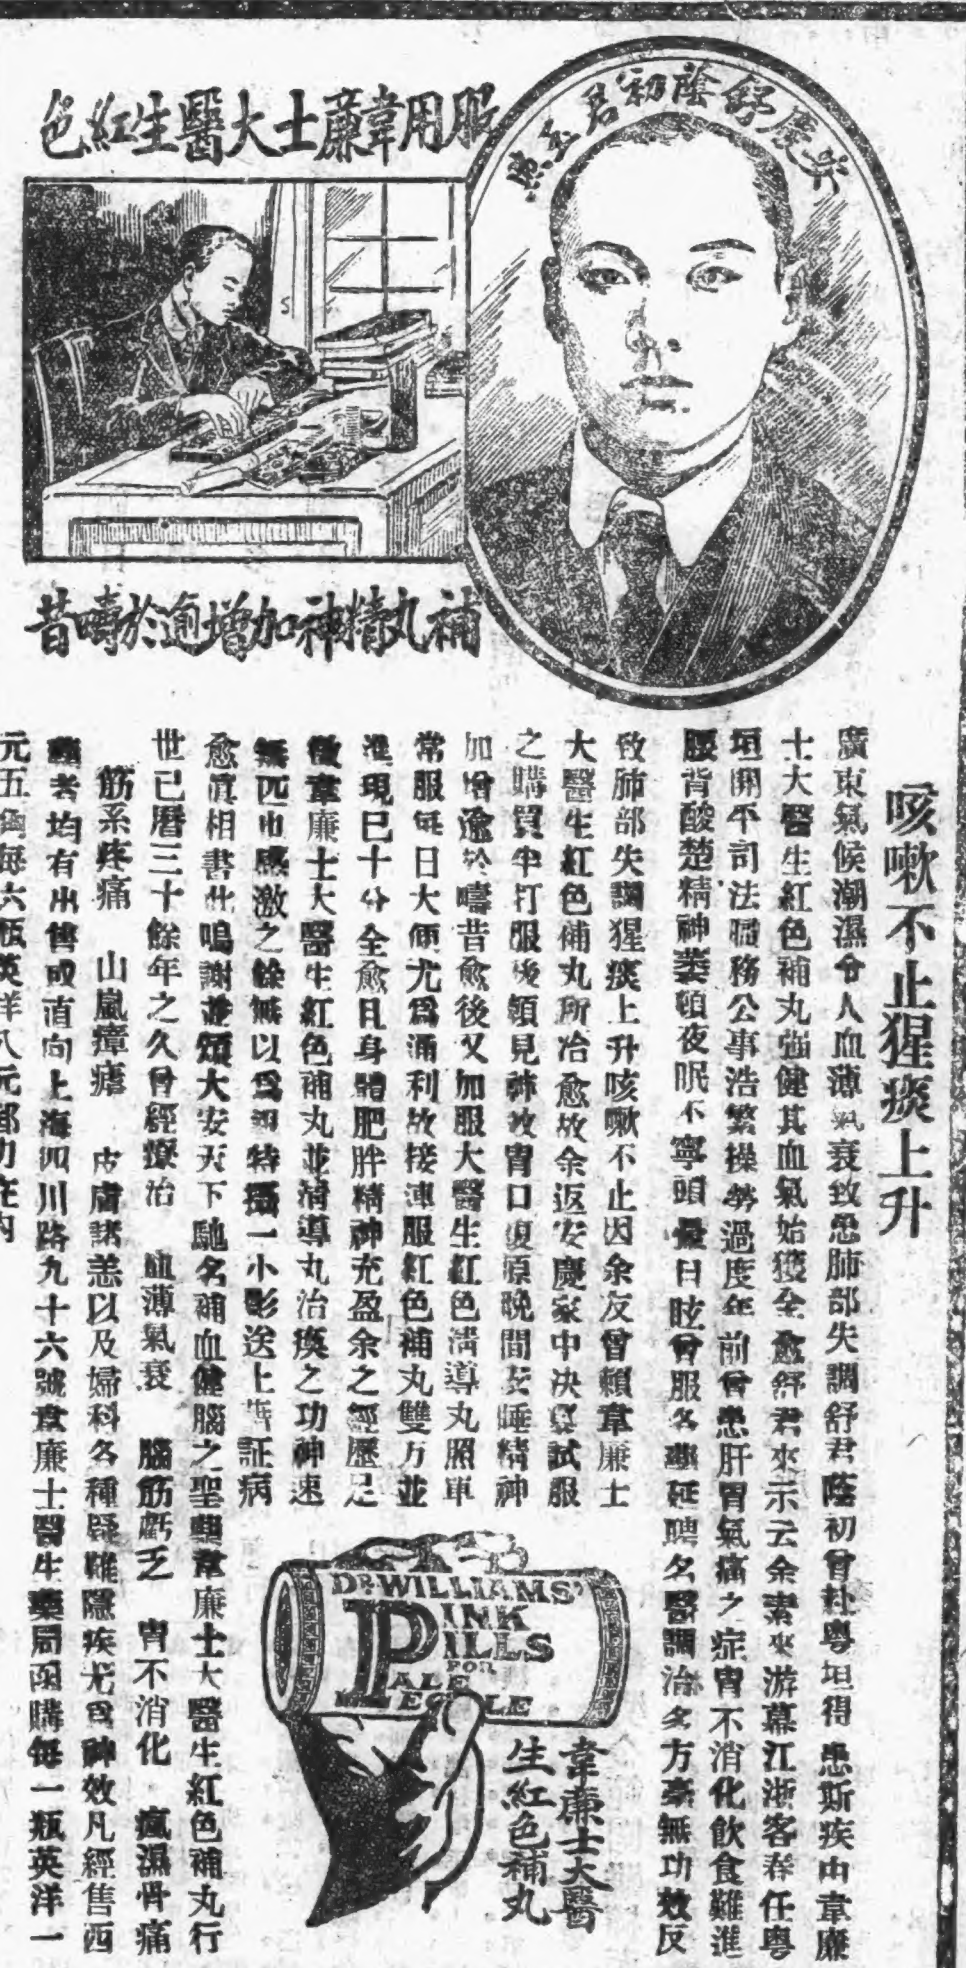 安慶舒蔭初君玉照
服用韋廉士大醫生紅色
補丸精神加增逾於疇昔
咳嗽不止猩痰上升
廣東氣候潮濕令人血薄氣衰致患肺部失調舒君蔭初曾赴粵垣得患斯疾由韋廉
士大醫生紅色補丸強健其血氣始獲全愈舒君來示云余素來游幕江浙客春任粵
垣開平司法職務公事浩繁操勞過度年前曾患肝胃氣痛之症胃不消化飲食難進
腰背酸楚精神萎頓夜眠不寧頭暈目眩曾服各藥延聘名醫調治多方毫無功效反
致肺部失調猩痰上升咳嗽不止因余友曾賴韋廉士
大醫生紅色補丸所治愈故余返安慶家中決意試服
之購買半打服後頓見神效胃口復原晚間安睡精神
加增逾於疇昔愈後又加服大醫生紅色清導丸照車
常服每日大便尤為通利故接連服紅色補丸雙方並
進現已十分全愈且身體肥胖精神充盈余之經歷足
徵韋廉士大醫生紅色補丸並清導丸治瘼之功神速
無匹也感激之餘無以為報特攝一小影送上藉証病
愈眞相書此鳴謝並頌大安天下馳名補血健腦之聖藥韋廉士大醫生紅色補丸行
世已曆三十餘年之久曾經療治 血薄氣衰 腦筋虧乏 胃不消化 瘋濕骨痛
筋系疼痛 山嵐瘴瘧 皮膚諸恙以及婦科各種疑難隱疾尤為神效凡經售西
藥者均有出售或直向上海四川路九十六號韋廉士醫生藥局函購每一瓶英洋一
元五角每六瓶英洋八元郵力在內
DR WILLIAMS'
PINK
PILLS
FOR
PALE
PEOPLE
韋廉士大醫
生紅色補丸